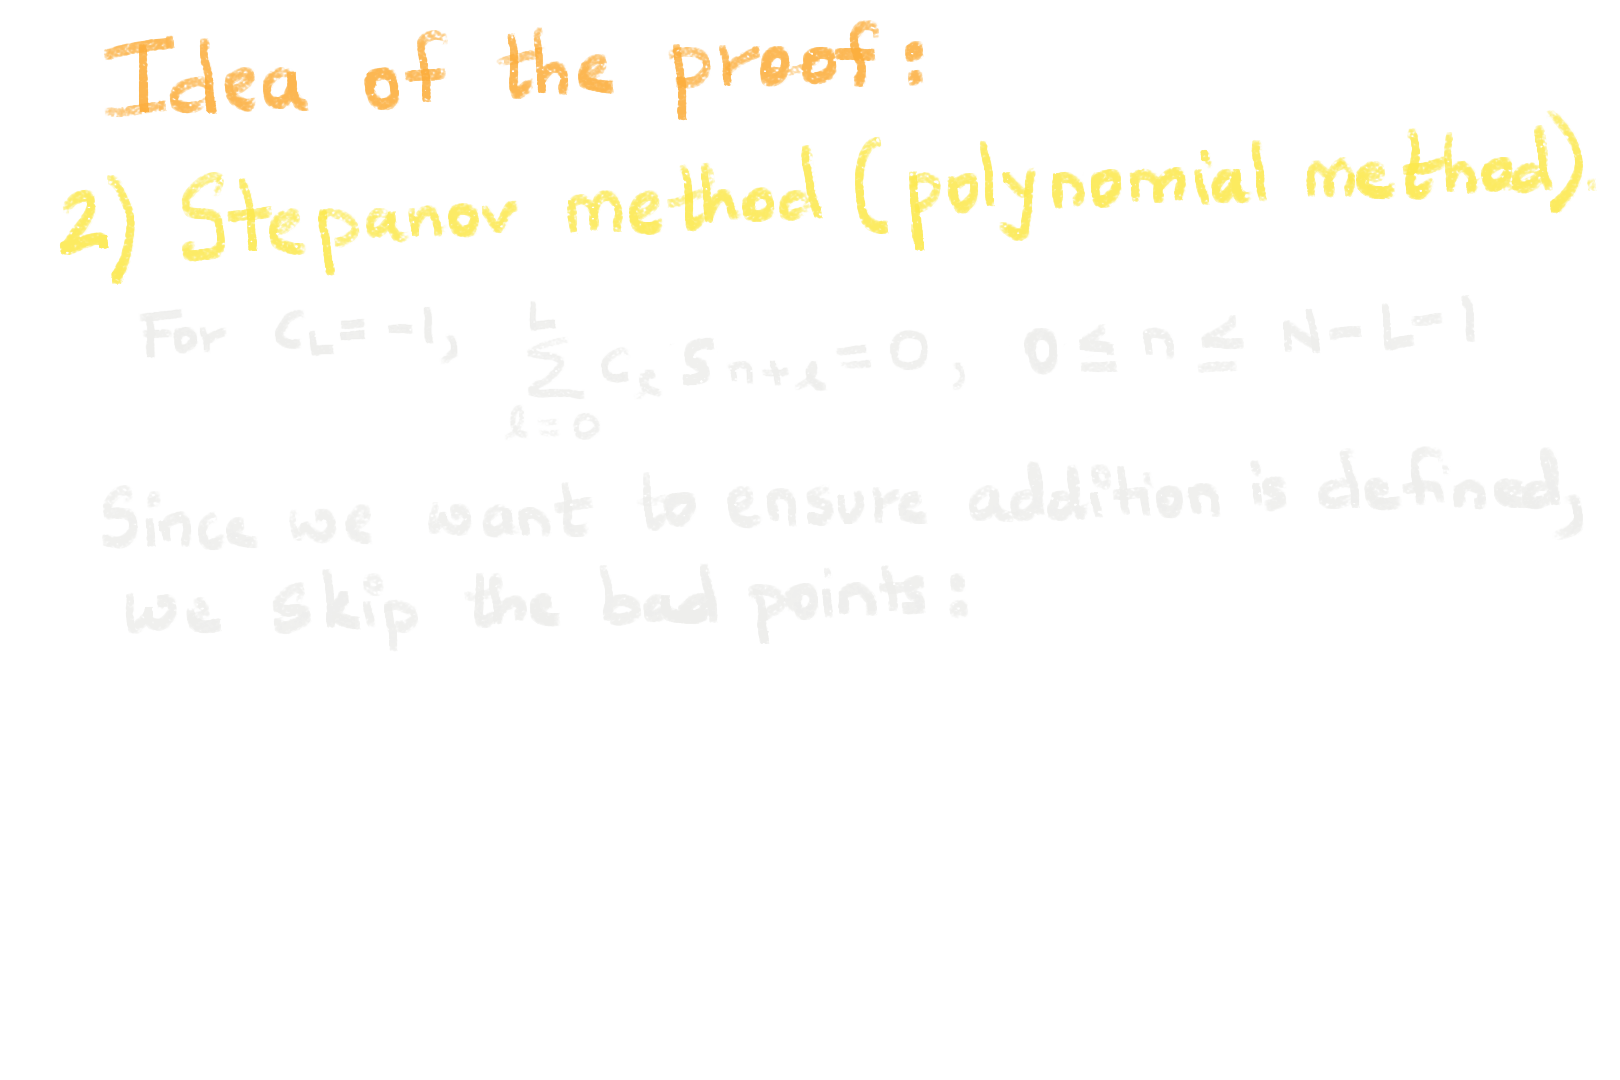 Idea of the proof:
2) Stepanov method (polynomial method).
For C_L = -1, \sum_{ℓ=0}^{L} c_ℓ s_{n+ℓ} = 0, 0 ≤ n ≤ N-L-1
Since we want to ensure addition is defined,
we skip the bad points: